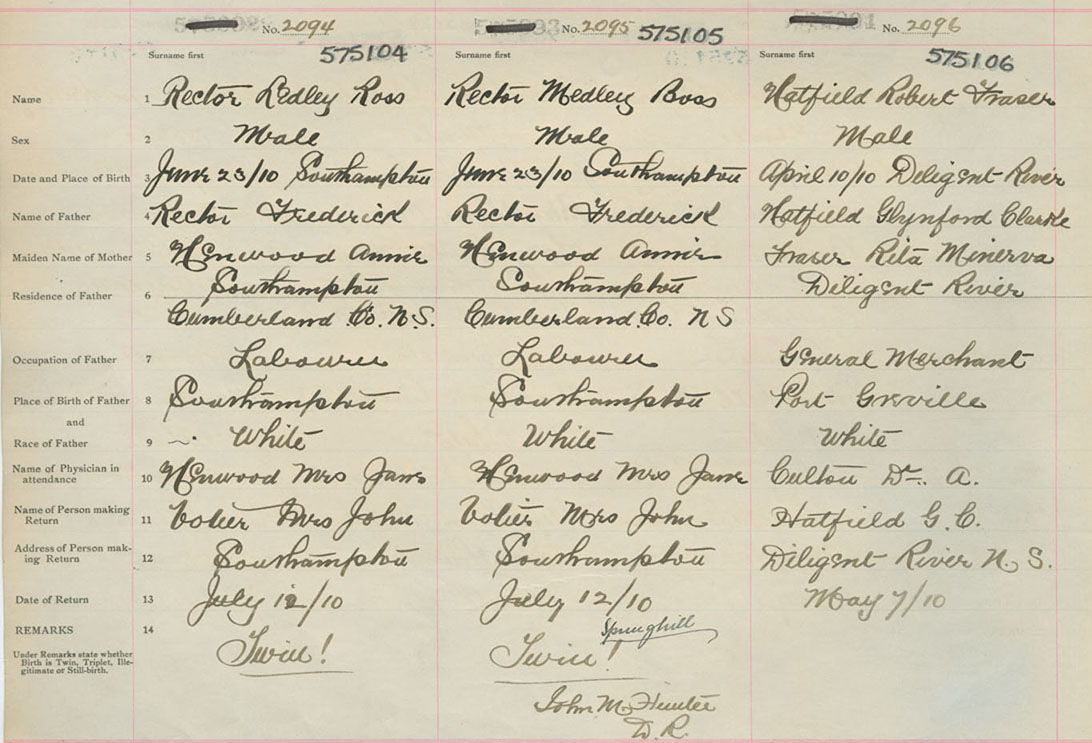 No. 2094
No. 2095
No. 2096
575104
575105
575106
Surname first
Surname first
Surname first
Name 1 Rector Ledley Ross Rector Medley Boss Hatfield Robert Fraser
Sex 2 Male Male Male
Date and Place of Birth 3 June 23/10 Southampton June 23/10 Southampton April 10/10 Diligent River
Name of Father 4 Rector Frederick Rector Frederick Hatfield Glynford Clarke
Maiden Name of Mother 5 Henwood Annie Henwood Annie Fraser Rita Minerva
Residence of Father 6 Southampton Southampton Diligent River
Cumberland Co. N.S. Cumberland. Co. N S
Occupation of Father 7 Labourer Labourer General Merchant
Place of Birth of Father 8 Southampton Southampton Port Greville
and
Race of Father 9 White White White
Name of Physician in
attendance 10 Henwood Mrs Jane Henwood Mrs Jane Culton Dr. A.
Name of Person making
Return 11 Mrs John Mrs John Hatfield G. C.
Address of Person mak-
ing Return 12 Southampton Southampton Diligent River N. S.
Date of Return 13 July 12/10 July 12/10 May 7/10
REMARKS 14
Springhill
Under Remarks state whether
Birth is Twin, Triplet, Ille-
gitimate or Still-birth.
Twin! Twin!
John M. Hunter
D. R.